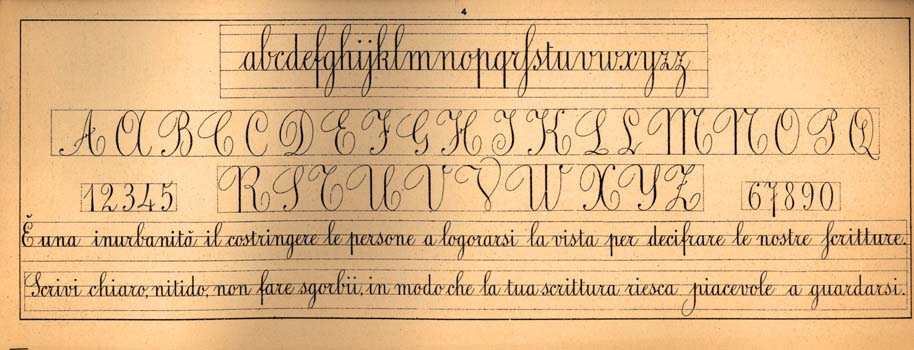 4
abcdefghijklmnopqrſstuvwxyzz
A A B C C D E F G H I K L L M N O P Q
12345 R S T U V V W X Y Z 67890
È una inurbanità il costringere le persone a logorarsi la vista per decifrare le nostre scritture.
Scrivi chiaro, nitido, non fare sgorbii, in modo che la tua scrittura riesca piacevole a guardarsi.